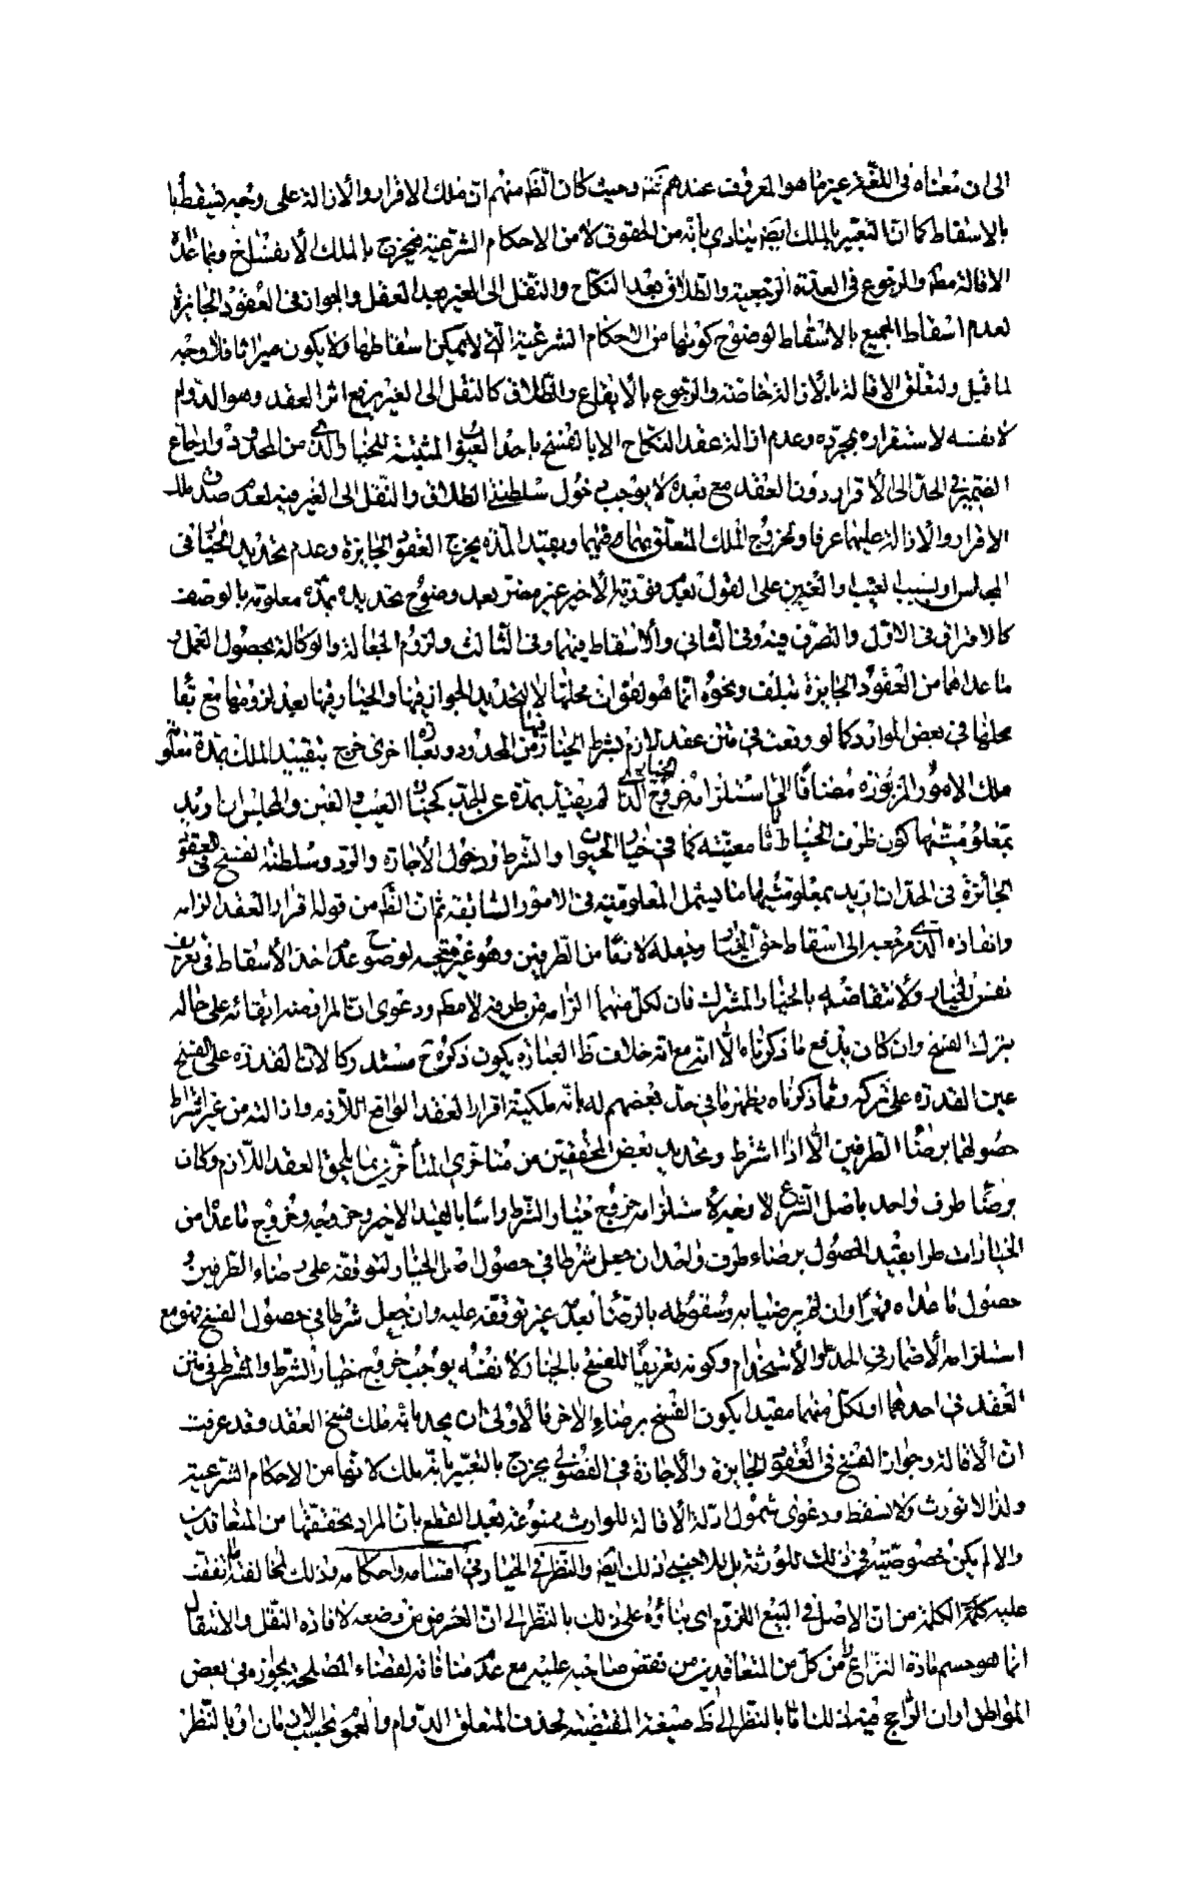 الى ان معناه فى اللغة غير ما هو المعروف عندهم ثمّة وحيث كان الظ منهم انّ ملك الاقرار والازالة على وجه يسقط
بالاسقاط كما انّ التعبير بالملك ايضا ينادى بانّه من الحقوق لا من الاحكام الشرعيّة فيخرج بالملك الانفساخ وبما عداه
الاقالة مط والرجوع فى العدّة الرجعية والطلاق بعد النكاح والنقل الى الغير بعد العقد والجواز فى العقود الجائزة
لعدم اسقاط الجميع بالاسقاط لوضوح كونها من الاحكام الشرعيّة الّتى لا يمكن اسقاطها ولا يكون ميراثا فلا وجه
لما قيل ولتعلّق الاقالة بالازالة خاصّة والرجوع بالايقاع والطلاق كالنقل الى الغير برفع اثر العقد وهو الدوام
لا نفسه لاستقراره بمجرّده وعدم ازالة عقد النكاح الا بالفسخ باحد العيوب المثبتة للخيار والّذى من المحدود وارجاع
الضمير فى الحدّ الى الاقرار دون العقد مع بعده لا يوجب دخول سلطنة الطلاق والنقل الى الغير فيه لعدم صدق ملك
الاقرار والازالة عليهما عرفا وبخروج الملك المتعلّق بهما وبقيد المدّة يخرج العقود الجائزة وعدم تحديد الخيار فى
المجلس وبسبب العيب والغبن على القول بعدم فوريّة الاخير غير مضرّ بعد وضوح تحديده بمدّة معلومة بالوصف
كالافتراق فى الاوّل والتصرّف فيه وفى الثانى والاسقاط فيهما وفى الثالث ولزوم الجعالة والوكالة بحصول العمل و
ما عداهما من العقود الجائزة بتلف ونحوه انّما هو لفوات محلّها لا لتحديد الجواز فيها والخيار فيها بعد لزومها مع بقاء
محلّها فى بعض الموارد كما لو وقعت فى متن عقد لازم بشرط الخيار فيها من المحدود وبعبارة اخرى خرج بتقييد الملك بمدّة معلومة
ملك الامور المزبورة مضافا الى استلزامه خروج الخيار الّذى لم يقيّد بمدّة عن الحدّ كخيار العيب والغبن والمجلس ان اريد
بمعلوميّتها كون ظرف الخيار زمانا معيّنا كما فى خيار الحيوان والشرط ودخول الاجازة والردّ وسلطنة الفسخ فى العقود
الجائزة فى الحدّ ان اريد بمعلوميّتها ما يشمل المعلوميّة فى الامور السابقة ثم انّ الظ من قوله اقرار العقد الزامه
وانفاذه الّذى مرجعه الى اسقاط حقّ الخيار وجعله لازما من الطرفين وهو غير متّجه لوضوح عدم اخذ الاسقاط فى تعريف
نفس الخيار ولانتقاضه بالخيار المشترك فان لكلّ منهما الزامه من طرفه لا مط ودعوى انّ المراد منه ابقائه على حاله
بترك الفسخ وان كان يدفع ما ذكرناه الا انّه مع انّه خلاف ظ العبارة يكون ذكره ح مستدركا لانّ القدرة على الفسخ
عين القدرة على تركه وممّا ذكرناه يظهر ما فى حدّ بعضهم له بانّه ملكيّة اقرار العقد الواقع اللازم وازالته من غير اشتراط
حصولهما برضا الطرفين الّا اذا اشترط وتحديد بعض المحقّقين من متأخّرى المتأخّرين بما يلحق العقد اللازم وكان
برضا طرف واحد باصل الشرع لا وجه له لاستلزامه خروج خيار الشرط راسا بالقيد الاخير وخروجه وخروج ما عداه من
الخيارات طرا بقيد الحصول برضاء طرف واحد ان جعل شرطا فى حصول اصل الخيار لتوقّفه على رضاء الطرفين و
حصول ما عداه قهرا وان لم يرضيا به وسقوطه بالرضا بعده غير توقّفه عليه وان جعل شرطا فى حصول الفسخ فهو مع
استلزامه الاضمار فى الحدّ والاستخدام وكونه تعريفا للفسخ بالخيار لا نفسه يوجب خروج خيار الشرط والمشترط فى متن
العقد فى احدهما او لكلّ منهما مقيدا بكون الفسخ برضاء الاخر فالاولى ان يحد بانّه ملك فسخ العقد وقد عرفت
انّ الاقالة وجواز الفسخ فى العقود الجايزة والاجازة فى الفضولى يخرج بالتعبير بانّه ملك لانّها من الاحكام الشرعيّة
ولذا لا تورث ولا تسقط ودعوى شمول ادلّة الاقالة للوارث ممنوعة بعد القطع بان المراد تحقّقها من المتعاقدين
والا لم يكن خصوصيّة فى ذلك للورثة بل للاجنبى ذلك ايضا والنظر فى الخيار فى اقسامه واحكامه وذلك لمخالفته لما اتّفقت
عليه كلمة الكلمة من انّ الاصل فى البيع اللزوم اى بنائه على ذلك بالنظر الى انّ الغرض من وضعه لافادة النقل والانتقال
انّما هو حسم مادّة النزاع و من كلّ من المتعاقدين من نقض صاحبه عليه مع عدم منافاته لقضاء المصلحة بجوازه فى بعض
المواطن او ان الراجح فيه ذلك امّا بالنظر الى ظ صيغة المقتضية لحذف المتعلق الدوام والعموم بحسب الازمان او بالنظر